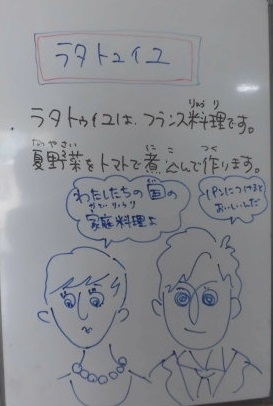 ラタトゥイユ
ラタトゥイユは、フランス料理です。
りょうり
なつやさい
にこ
つく
夏野菜をトマトで煮込んで作ります。
わたしたちの国の
かていりょうり
家庭料理よ
パンにつけると
おいしいんだ